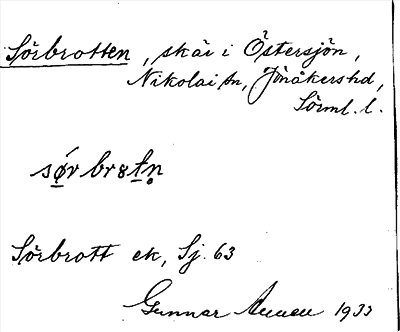 Sörbrotten, skär i Östersjön,
Nikolai sn, Jönåkers hd,
Sörml. l.
sǿr br8tn̥
Sörbrott ek, Sj. 63
Gunnar 1933